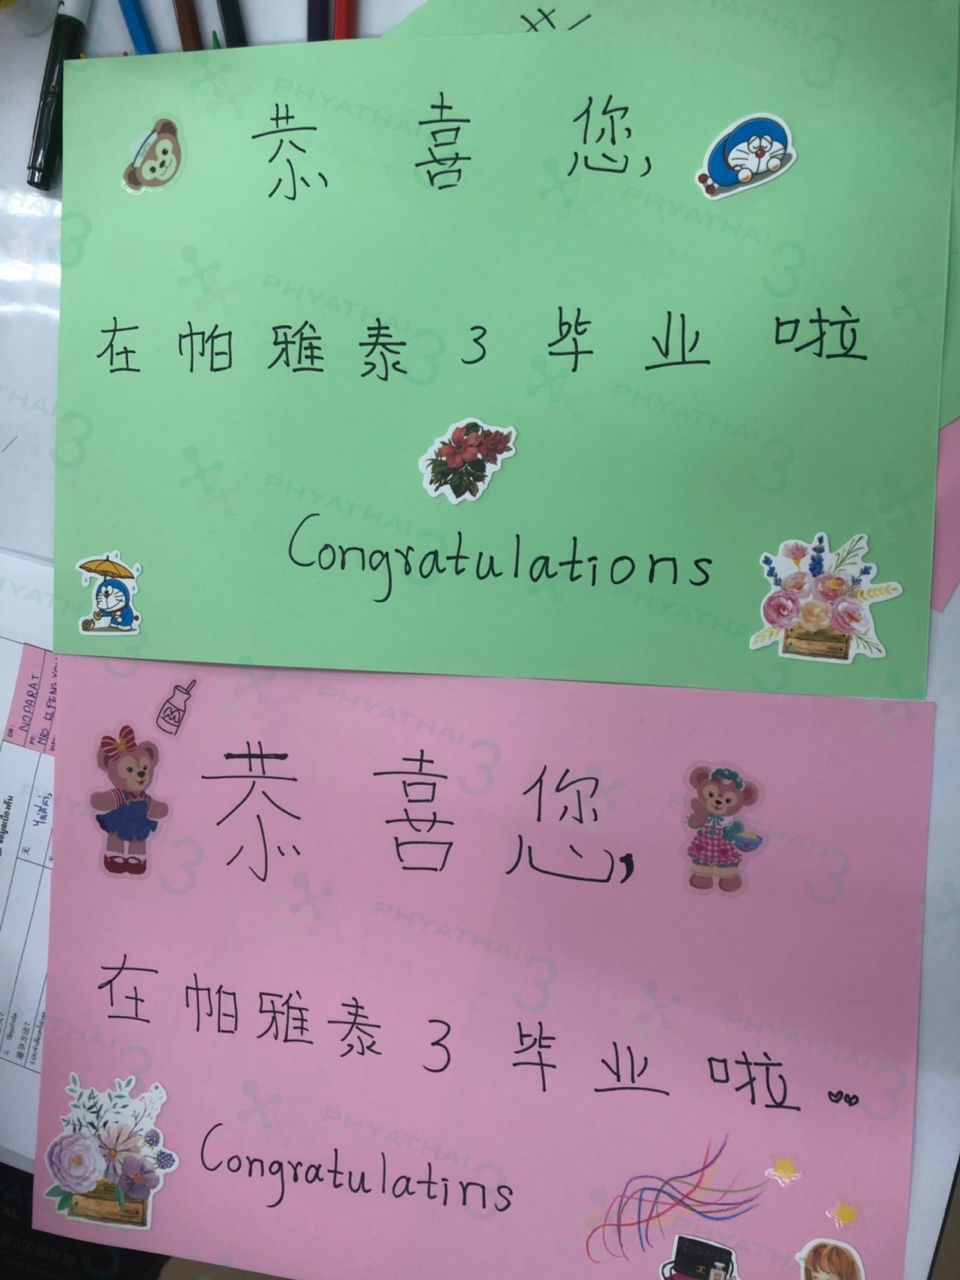 恭喜您,
在帕雅泰3毕业啦
Congratulations
恭喜您,
在帕雅泰3毕业啦..
Congratulatins
PHYATHAI 3
NOPARAT